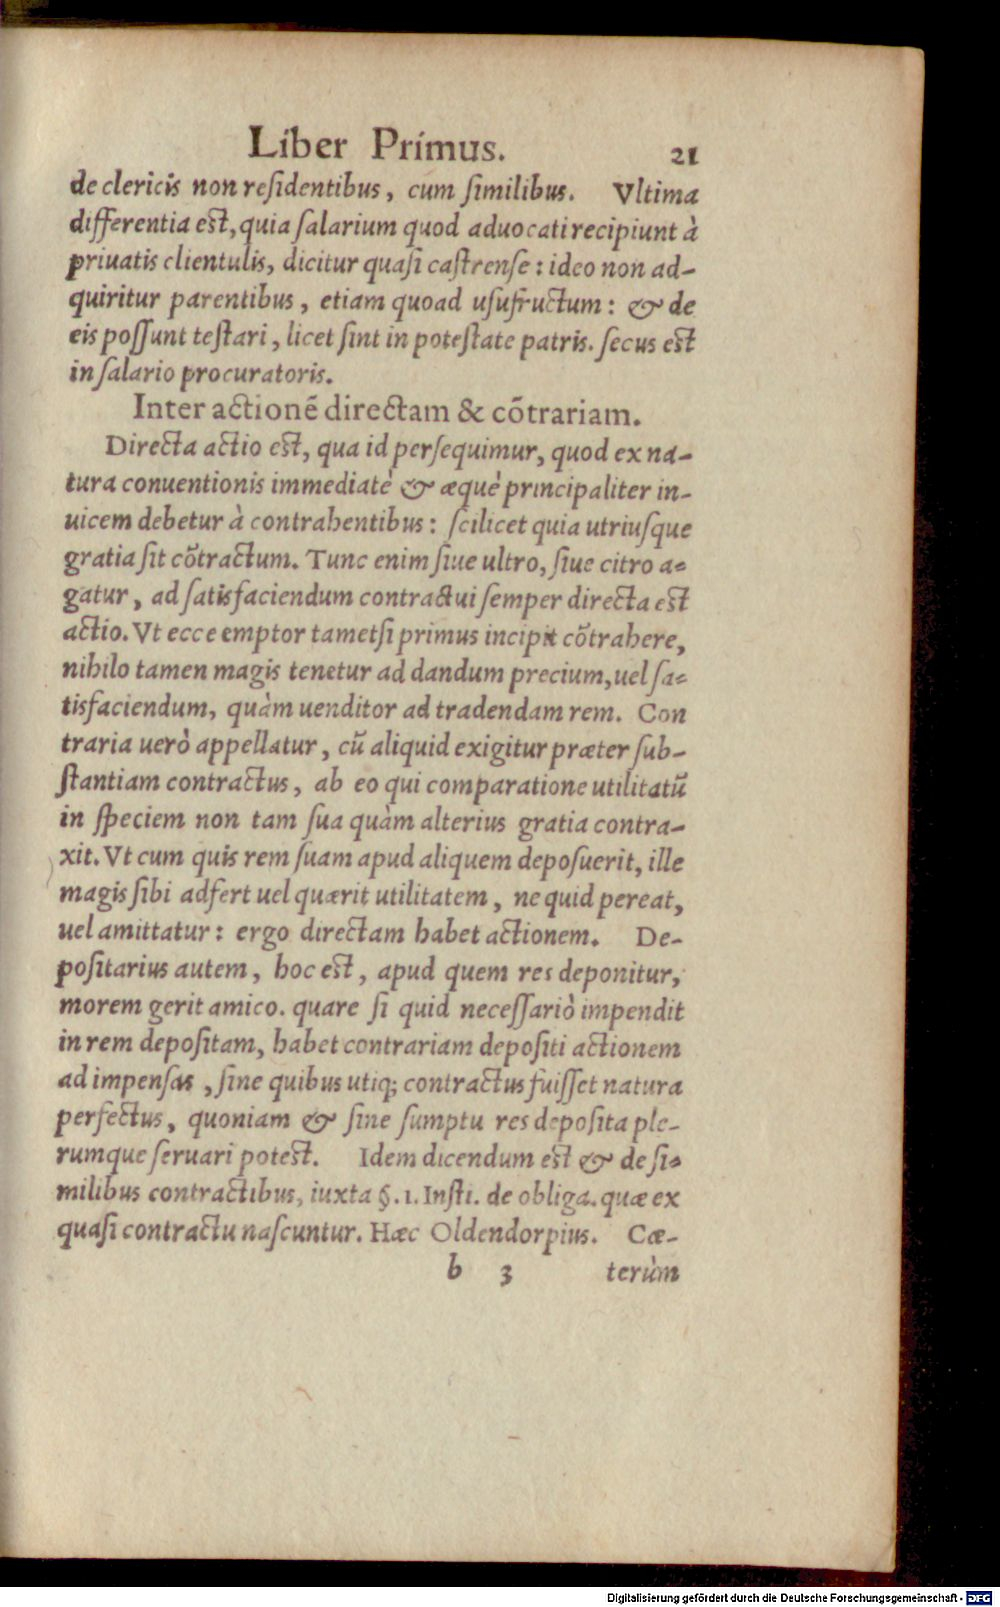 Liber Primus. 21
de clericis non residentibus, cum similibus. Vltima
differentia est, quia salarium quod aduocati recipiunt à
priuatis clientulis, dicitur quasi castrense: ideo non ad-
quiritur parentibus, etiam quoad usufructum: & de
eis possunt testari, licet sint in potestate patris. secus est
in salario procuratoris.
Inter actionē directam & cōtrariam.
Directa actio est, qua id persequimur, quod ex na-
tura conuentionis immediatè & æquè principaliter in-
uicem debetur à contrahentibus: scilicet quia utriusque
gratia sit cōtractum. Tunc enim siue ultro, siue citro a-
gatur, ad satisfaciendum contractui semper directa est
actio. Vt ecce emptor tametsi primus incipit cōtrahere,
nihilo tamen magis tenetur ad dandum precium, uel sa-
tisfaciendum, quàm uenditor ad tradendam rem. Con
traria uerò appellatur, cū aliquid exigitur præter sub-
stantiam contractus, ab eo qui comparatione utilitatū
in speciem non tam sua quàm alterius gratia contra-
xit. Vt cum quis rem suam apud aliquem deposuerit, ille
magis sibi adfert uel quærit utilitatem, ne quid pereat,
uel amittatur: ergo directam habet actionem. De-
positarius autem, hoc est, apud quem res deponitur,
morem gerit amico. quare si quid necessariò impendit
in rem depositam, habet contrariam depositi actionem
ad impensas, sine quibus utiq; contractus fuisset natura
perfectus, quoniam & sine sumptu res deposita ple-
rumque seruari potest. Idem dicendum est & de si-
milibus contractibus, iuxta §. 1. Insti. de obliga. quæ ex
quasi contractu nascuntur. Hæc Oldendorpius. Cæ-
b 3 terùm
Digitalisierung gefördert durch die Deutsche Forschungsgemeinschaft - DFG